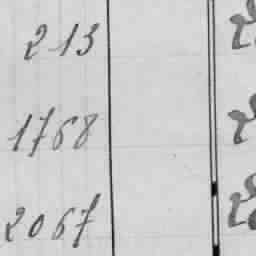 213
1768
2067